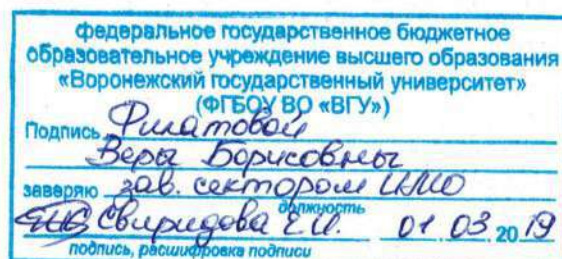 федеральное государственное бюджетное
образовательное учреждение высшего образования
«Воронежский государственный университет»
(ФГБОУ ВО «ВГУ»)
Подпись Филатовой
Веры Борисовны
заверяю зав. сектором
должность
Свиридова Е.И. 01 03 2019
подпись, расшифровка подписи